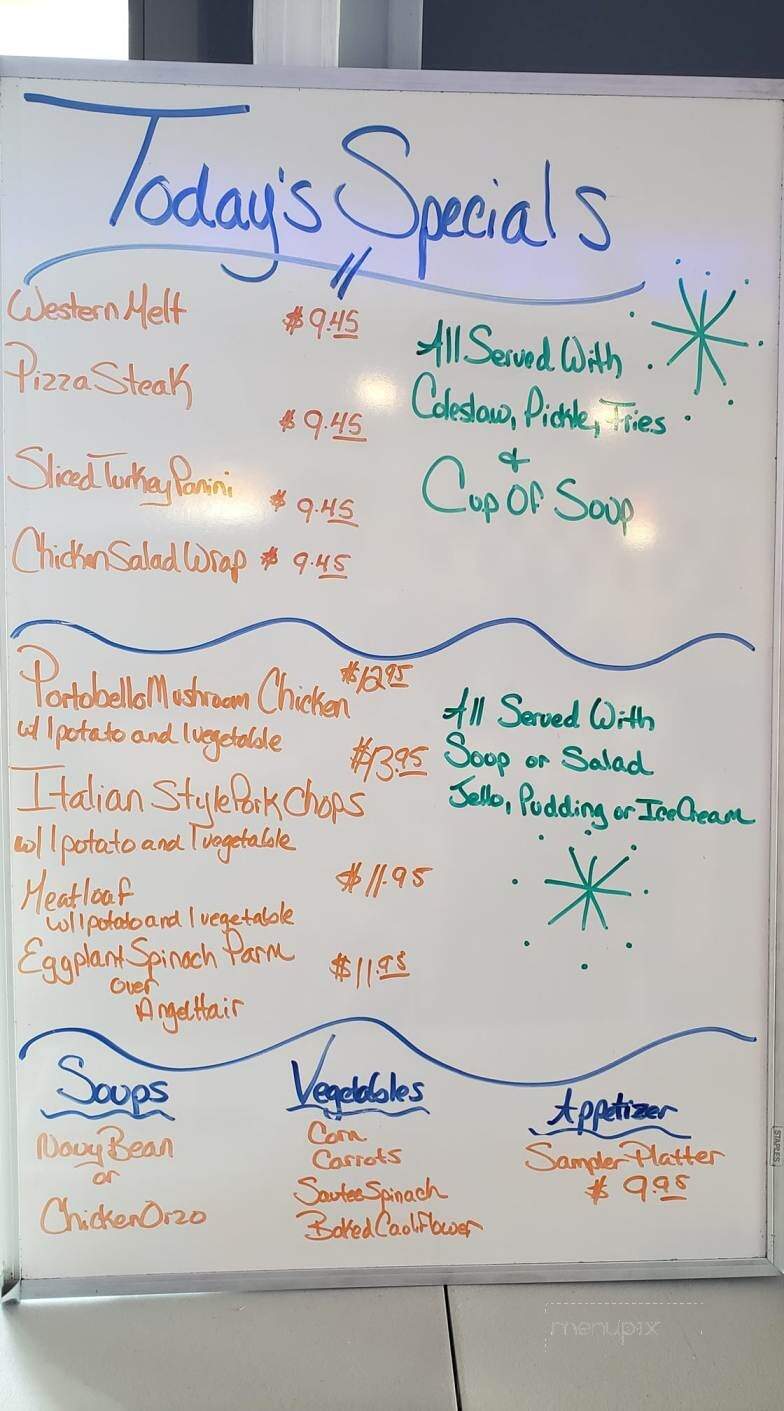 Today's Specials
Western Melt $9.45
Pizza Steak
$9.45
Sliced Turkey Panini $9.45
Chicken Salad Wrap $9.45
All Served With
Coleslaw, Pickle, Fries
&
Cup Of Soup
Portobello Mushroom Chicken $12.95
w/ 1 potato and 1 vegetable
$13.95
Italian Style Pork Chops
w/ 1 potato and 1 vegetable
Meatloaf $11.95
w/ 1 potato and 1 vegetable
Eggplant Spinach Parm $11.95
over
Angel Hair
All Served With
Soup or Salad
Jello, Pudding or Ice Cream
Soups
Navy Bean
or
Chicken Orzo
Vegetables
Corn
Carrots
Sautee Spinach
Baked Cauliflower
Appetizer
Sampler Platter
$9.95
STAPLES
menupix